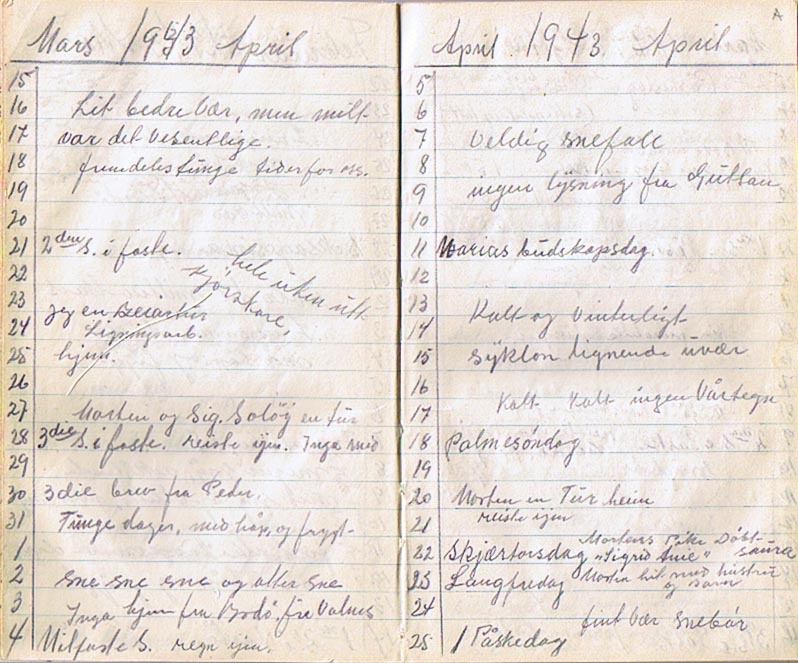 Mars 1943 April
15
16 Lit bedre vær, men milt
17 var det vesentlige.
18 fremdeles tunge tider for oss.
19
20
21 2den S. i faste.
22 hele uken ut
23 Jeg en
24 Ligningsarb.
25 hjem.
26
27 Morten og Sig. Soløj en tur
28 3die S. i faste. reiste ijen. Inga med
29
30 3die brev fra Peder.
31 Tunge dager, med håp, og frygt
1
2 sne sne sne og atter sne
3 Inga hjem fra Bodö. fra Valnes
4 Mitfaste S. regn ijen.
April 1943 April
5
6
7 Veldig snefall
8
9 ingen lysning fra Guttan
10
11 Marias budskapsdag.
12
13 Kalt og vinterligt
14
15 syklon lignende uvær
16
17 Kalt Kalt ingen Vårtegn
18 Palmesöndag
19
20 Morten en Tur heim
21 reiste ijen
22 Skjærtorsdag Mortens Pike Döbt "Sigrid Anie"
23 Langfredag Morten hit med hustru og barn
24 fint vær snebar
25 1 Påskedag